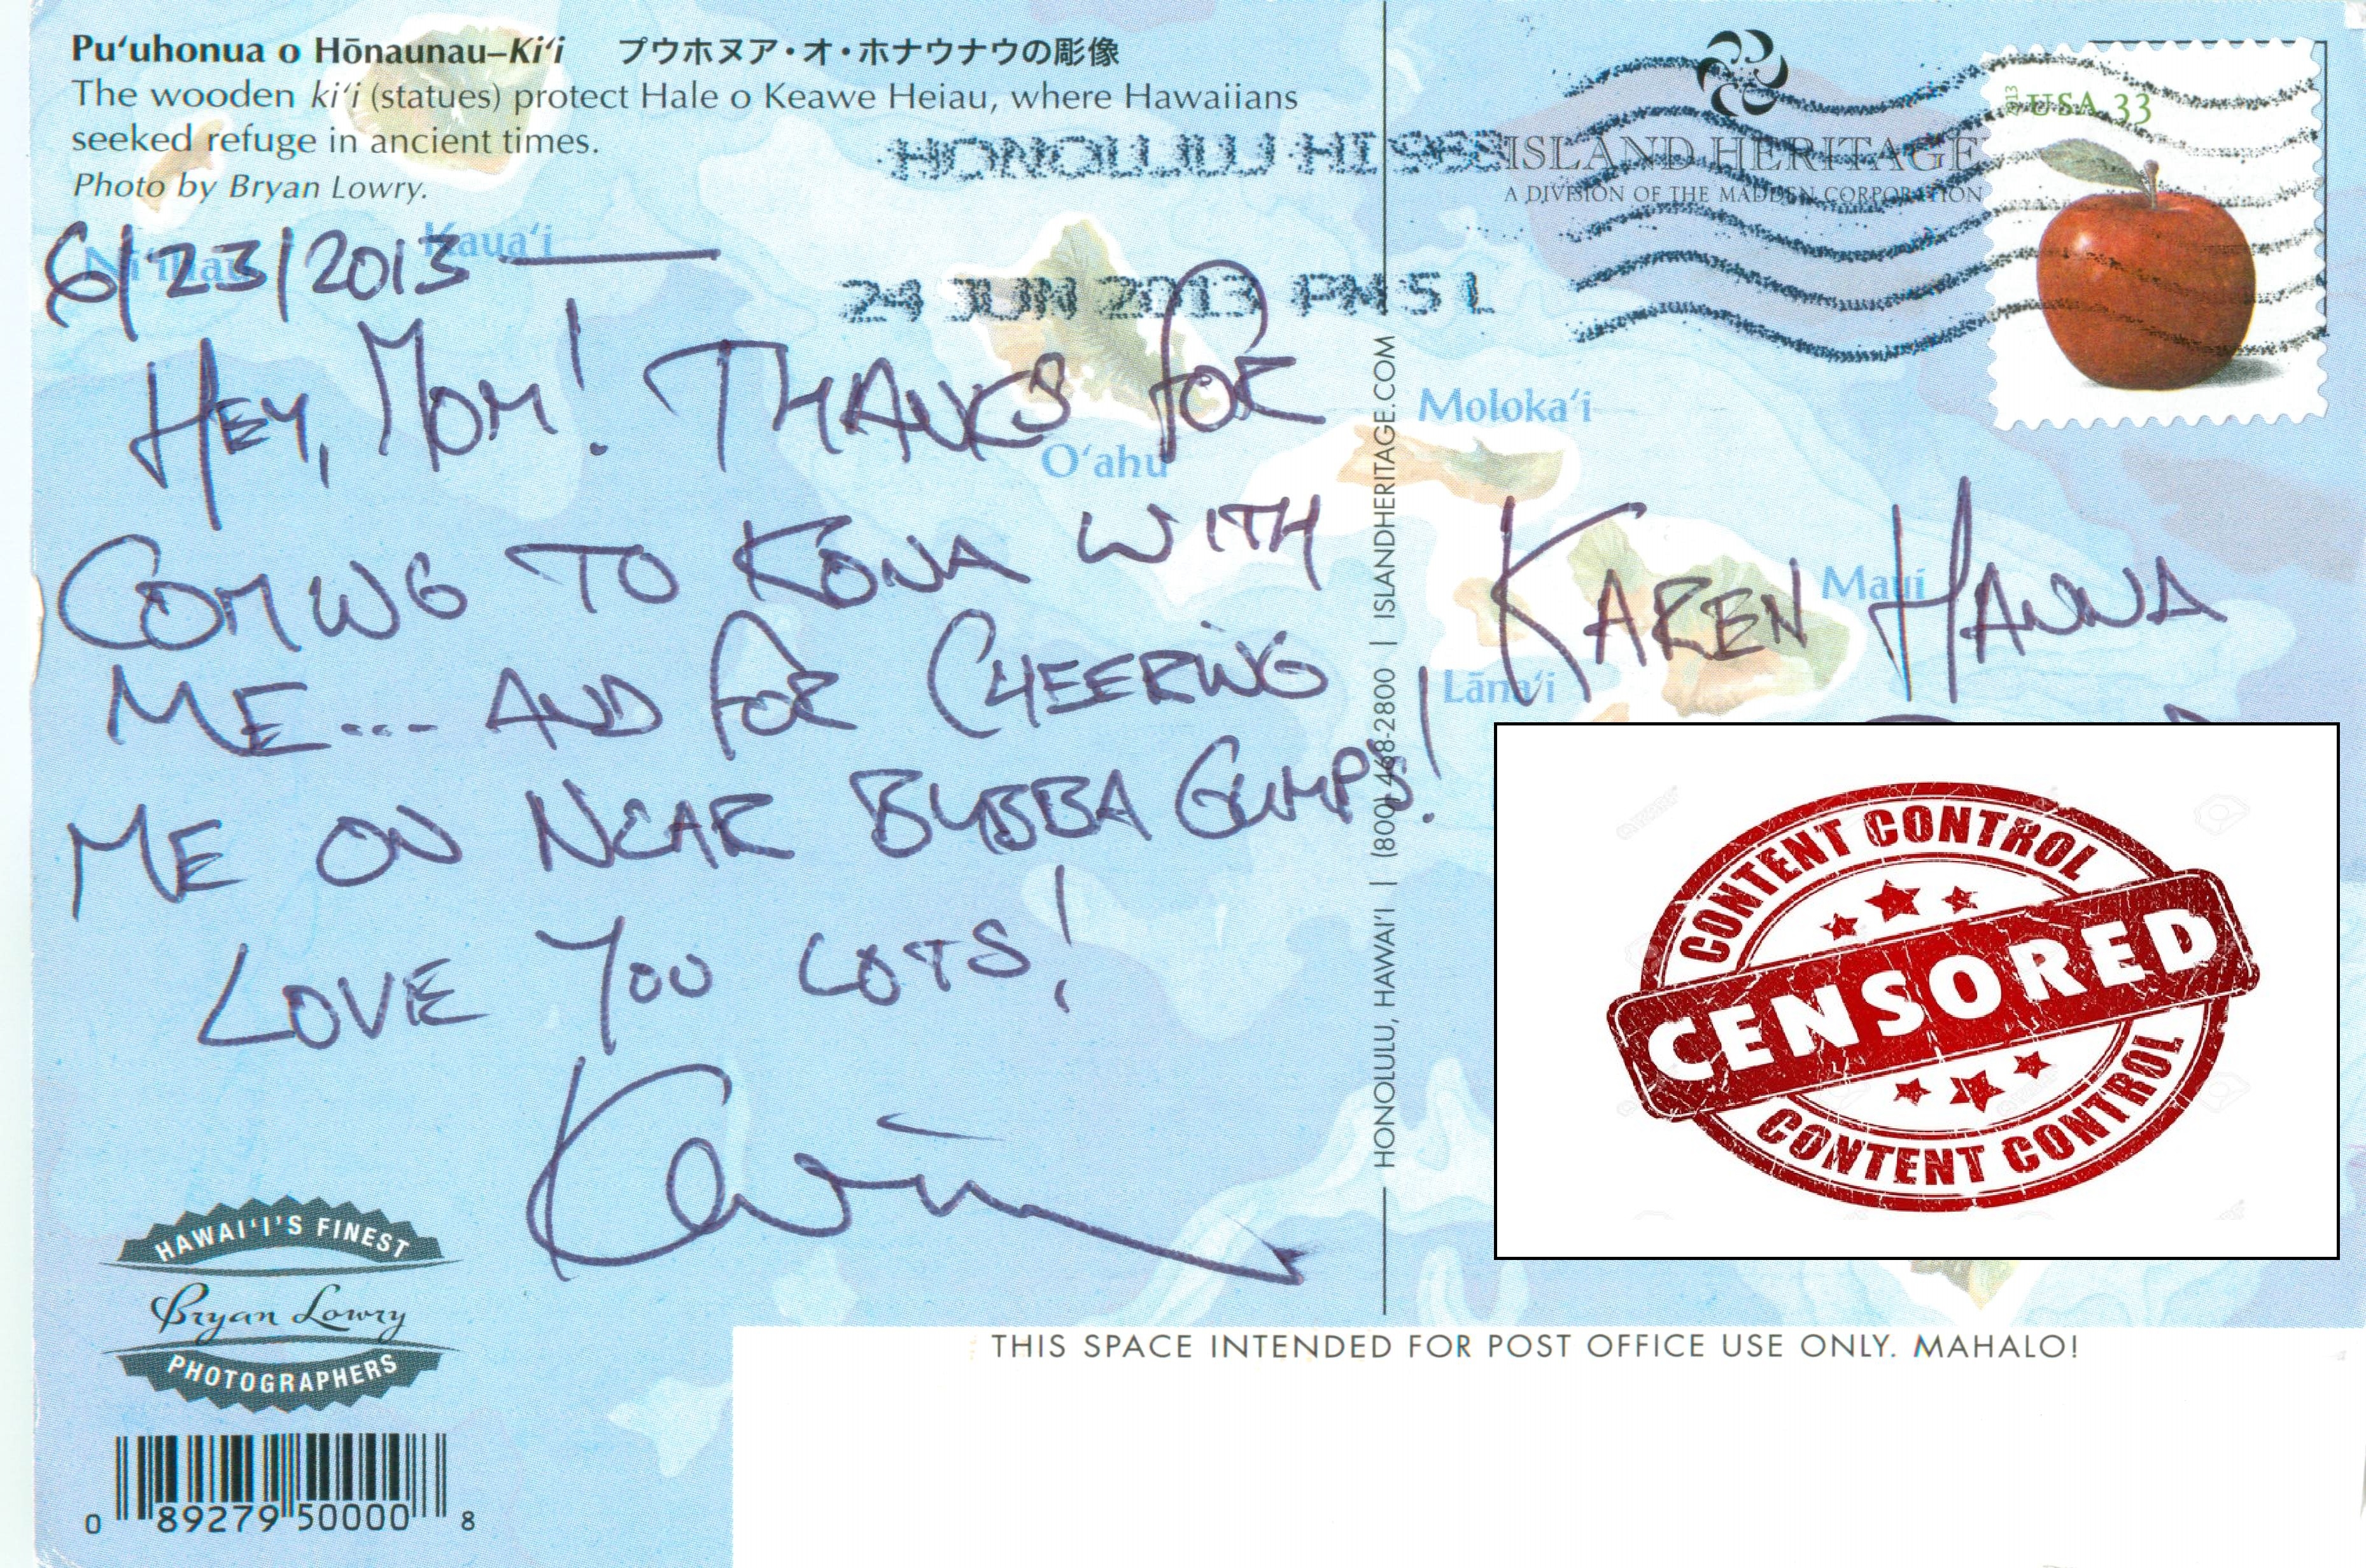 Pu‘uhonua o Hōnaunau–Ki‘i プウホヌア・オ・ホナウナウの彫像
The wooden ki‘i (statues) protect Hale o Keawe Heiau, where Hawaiians
seeked refuge in ancient times.
Photo by Bryan Lowry.
Ni‘ihau
Kaua‘i
O‘ahu
6/23/2013 —
HEY, MOM! THANKS FOR
COMING TO KONA WITH
ME... AND FOR CHEERING
ME ON NEAR BUBBA GUMPS!
LOVE YOU LOTS!
Kevin
HAWAI‘I’S FINEST
Bryan Lowry
PHOTOGRAPHERS
0 89279 50000 8
HONOLULU HI
24 JUN 2013 PM 5 L
HONOLULU, HAWAI‘I | (800) 468-2800 | ISLANDHERITAGE.COM
ISLAND HERITAGE
A DIVISION OF THE MADDEN CORPORATION
2013
USA 33
Moloka‘i
Maui
Lāna‘i
KAREN HANNA
CONTENT CONTROL
CENSORED
CONTENT CONTROL
THIS SPACE INTENDED FOR POST OFFICE USE ONLY. MAHALO!